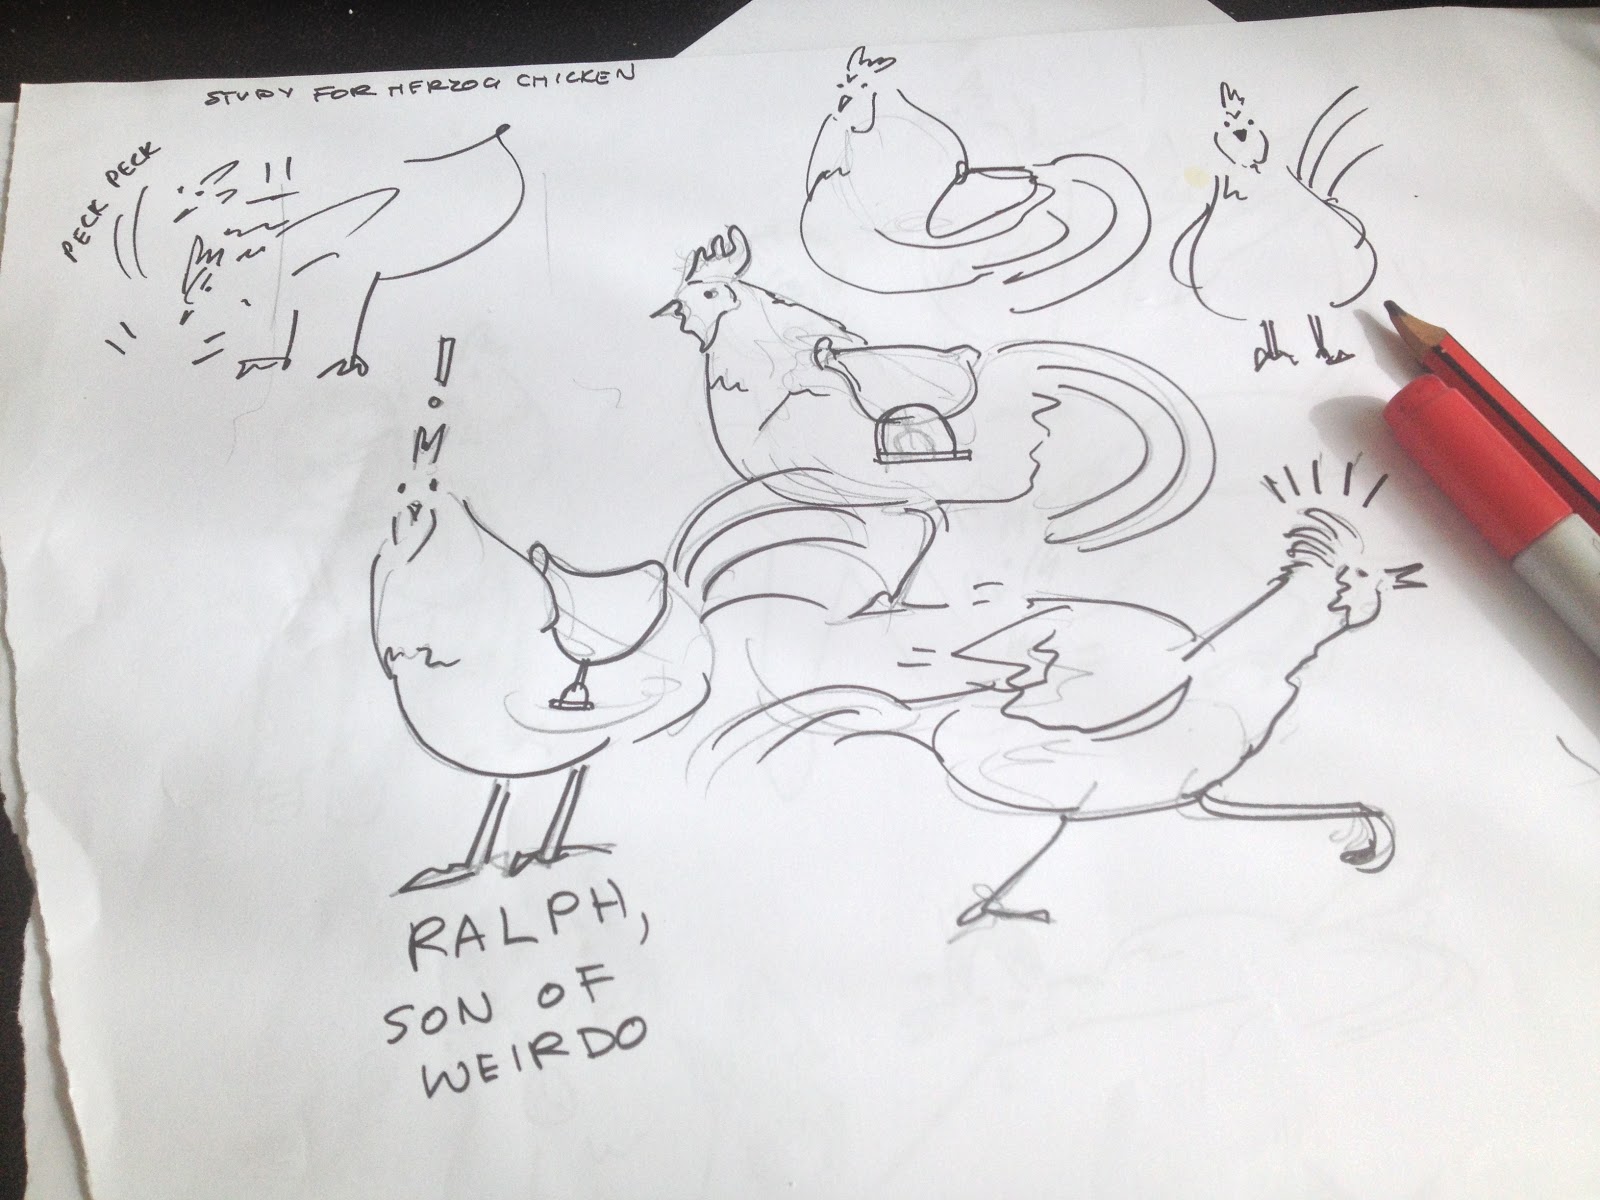 STUDY FOR HERZOG CHICKEN
PECK PECK
!
RALPH,
SON OF
WEIRDO